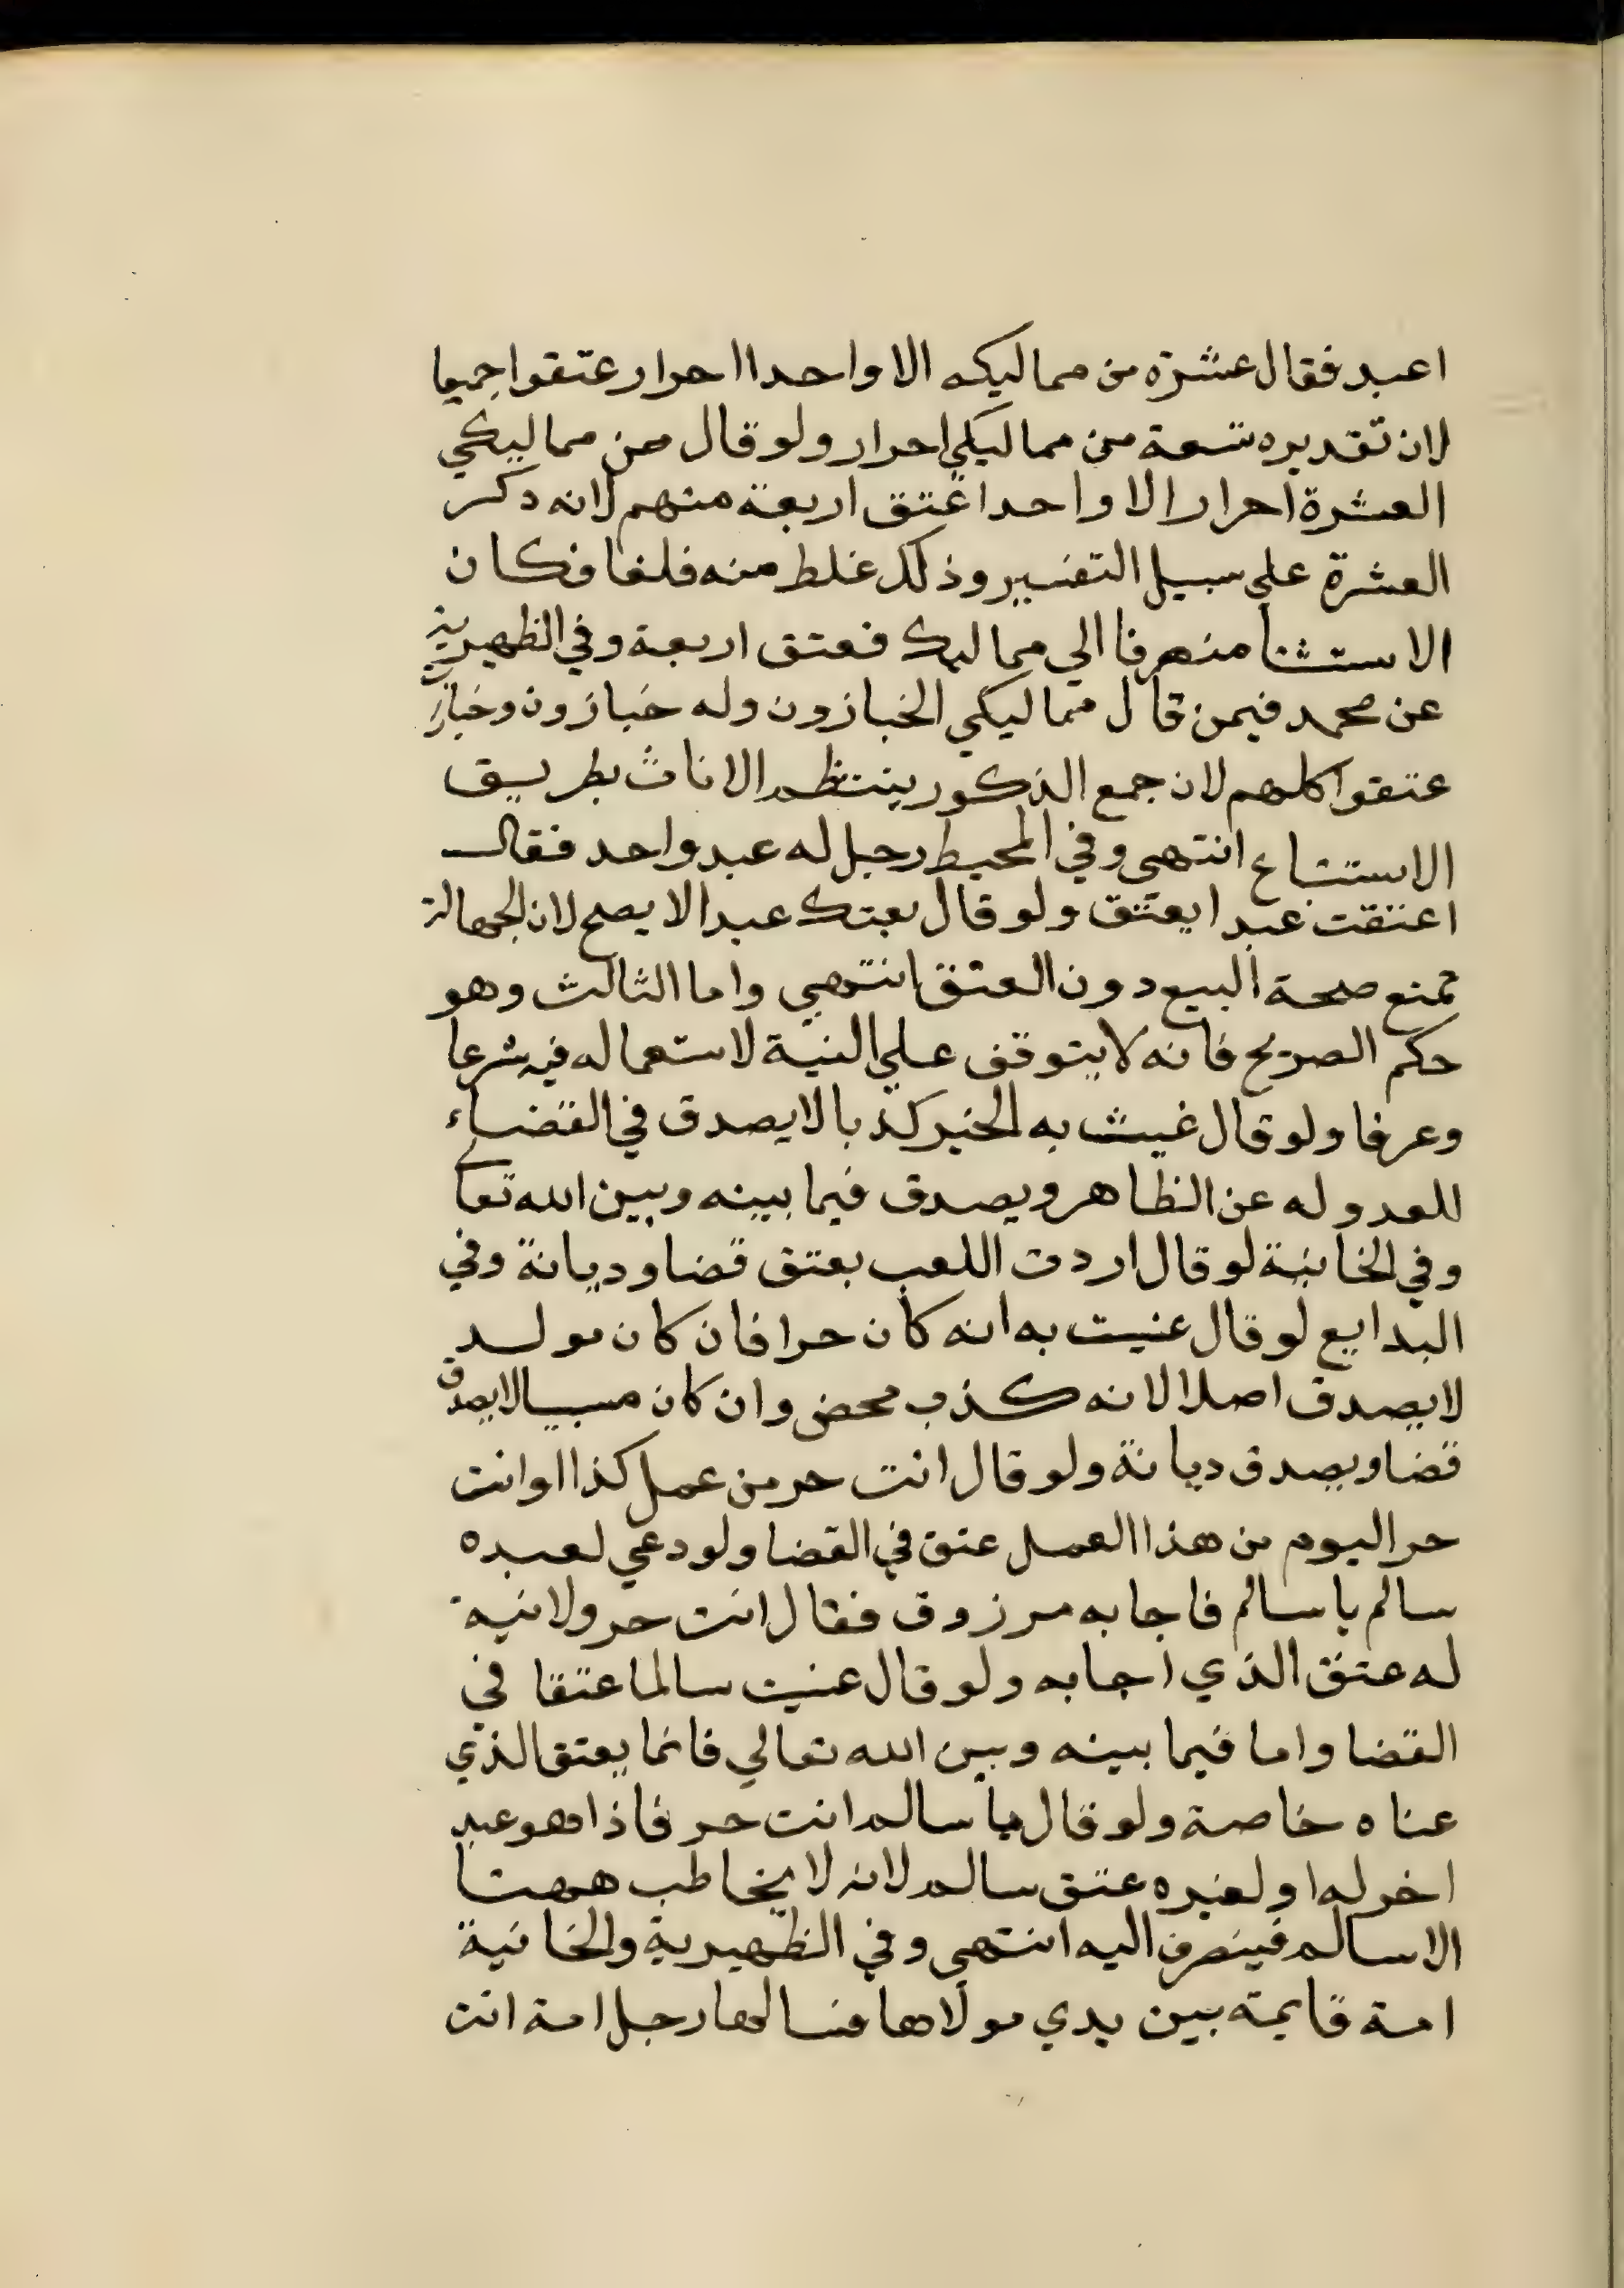 اعبد فقال عشرة من مماليكه الا واحدا احرار عتقوا جميعا
لان تقديره تسعة من مماليكي احرار ولو قال من مماليكي
العشرة احرار الا واحدا عتق اربعة منهم لانه ذكر
العشرة علي سبيل التفسير وذلك غلط منه فلغا فكان
الاستثنا منصرفا الي مماليك فعتق اربعة وفي الظهيرية
عن محمد فيمن قال مماليكي الخبازون وله خبازون وخبازات
عتقوا كلهم لان جمع الذكور ينتظم الاناث بطريق
الاستتباع انتهي وفي المحيط رجل له عبد واحد فقال
اعتقت عبدا يعتق ولو قال بعتك عبدا لا يصح لان الجهالة
تمنع صحة البيع دون العتق انتهي واما الثالث وهو
حكم الصريح فانه لا يتوقف علي النية لاستعماله فيه شرعا
وعرفا ولو قال غيبت به الخبر كذبا لا يصدق في القضاء
للعدوله عن الظاهر ويصدق فيما بينه وبين الله تعا
وفي الخانية لو قال اردت اللعب بعتق قضا وديانة وفي
البدايع لو قال عنيت به انه كان حرا فان كان مولد
لا يصدق اصلا لانه كذب محض وان كان مسبيا لا يصدق
قضا ويصدق ديانة ولو قال انت حر من عمل كذا او انت
حر اليوم من هذا العمل عتق في القضا ولو دعي لعبده
سالم يا سالم فاجابه مرزوق فقال انت حر ولا نية
له عتق الذي اجابه ولو قال عنيت سالما عتقا في
القضا واما فيما بينه وبين الله تعالي فانما يعتق الذي
عناه خاصة ولو قال يا سالم انت حر فاذا هو عبد
اخر له او لغيره عتق سالم لانه لا يخاطب ههنا
الا سالم فينصرف اليه انتهي وفي الظهيرية والخانية
امة قايمة بين يدي مولاها فسالها رجل امة انت